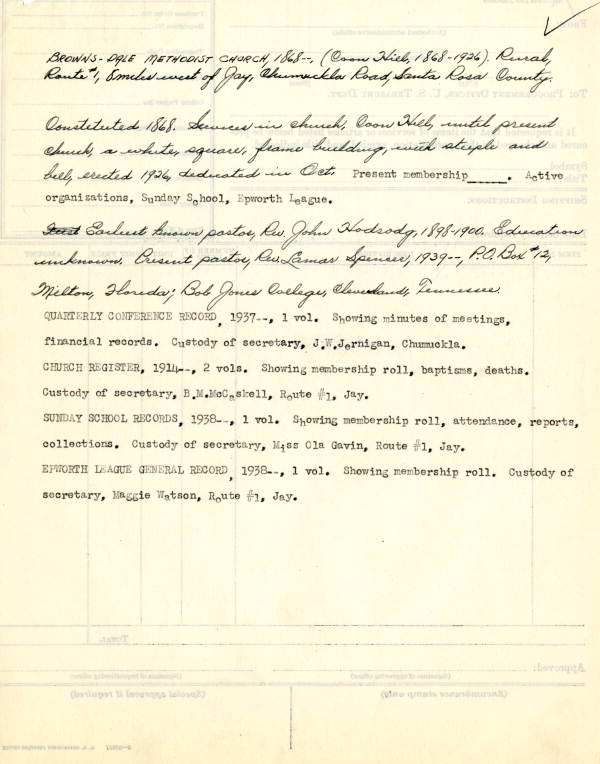 BROWNS-DALE METHODIST CHURCH, 1868--, (Coon Hill, 1868-1926). Rural,
Route #1, 8 miles west of Jay, Chumuckla Road, Santa Rosa County.
Constituted 1868. Services in church, Coon Hill, until present
church, a white, square, frame building, with steeple and
bell, erected 1926, dedicated in Oct. Present membership_____. Active
organizations, Sunday School, Epworth League.
Earliest known pastor, Rev. John Hodsody, 1898-1900. Education
unknown. Present pastor, Rev. Lamar Spencer, 1939--, P.O. Box #12,
Milton, Florida; Bob Jones College, Cleveland, Tennessee.
QUARTERLY CONFERENCE RECORD, 1937--, 1 vol. Showing minutes of meetings,
financial records. Custody of secretary, J.W.Jernigan, Chumuckla.
CHURCH REGISTER, 1914--, 2 vols. Showing membership roll, baptisms, deaths.
Custody of secretary, B.M.McCaskell, Route #1, Jay.
SUNDAY SCHOOL RECORDS, 1938--, 1 vol. Showing membership roll, attendance, reports,
collections. Custody of secretary, Miss Ola Gavin, Route #1, Jay.
EPWORTH LEAGUE GENERAL RECORD, 1938--, 1 vol. Showing membership roll. Custody of
secretary, Maggie Watson, Route #1, Jay.